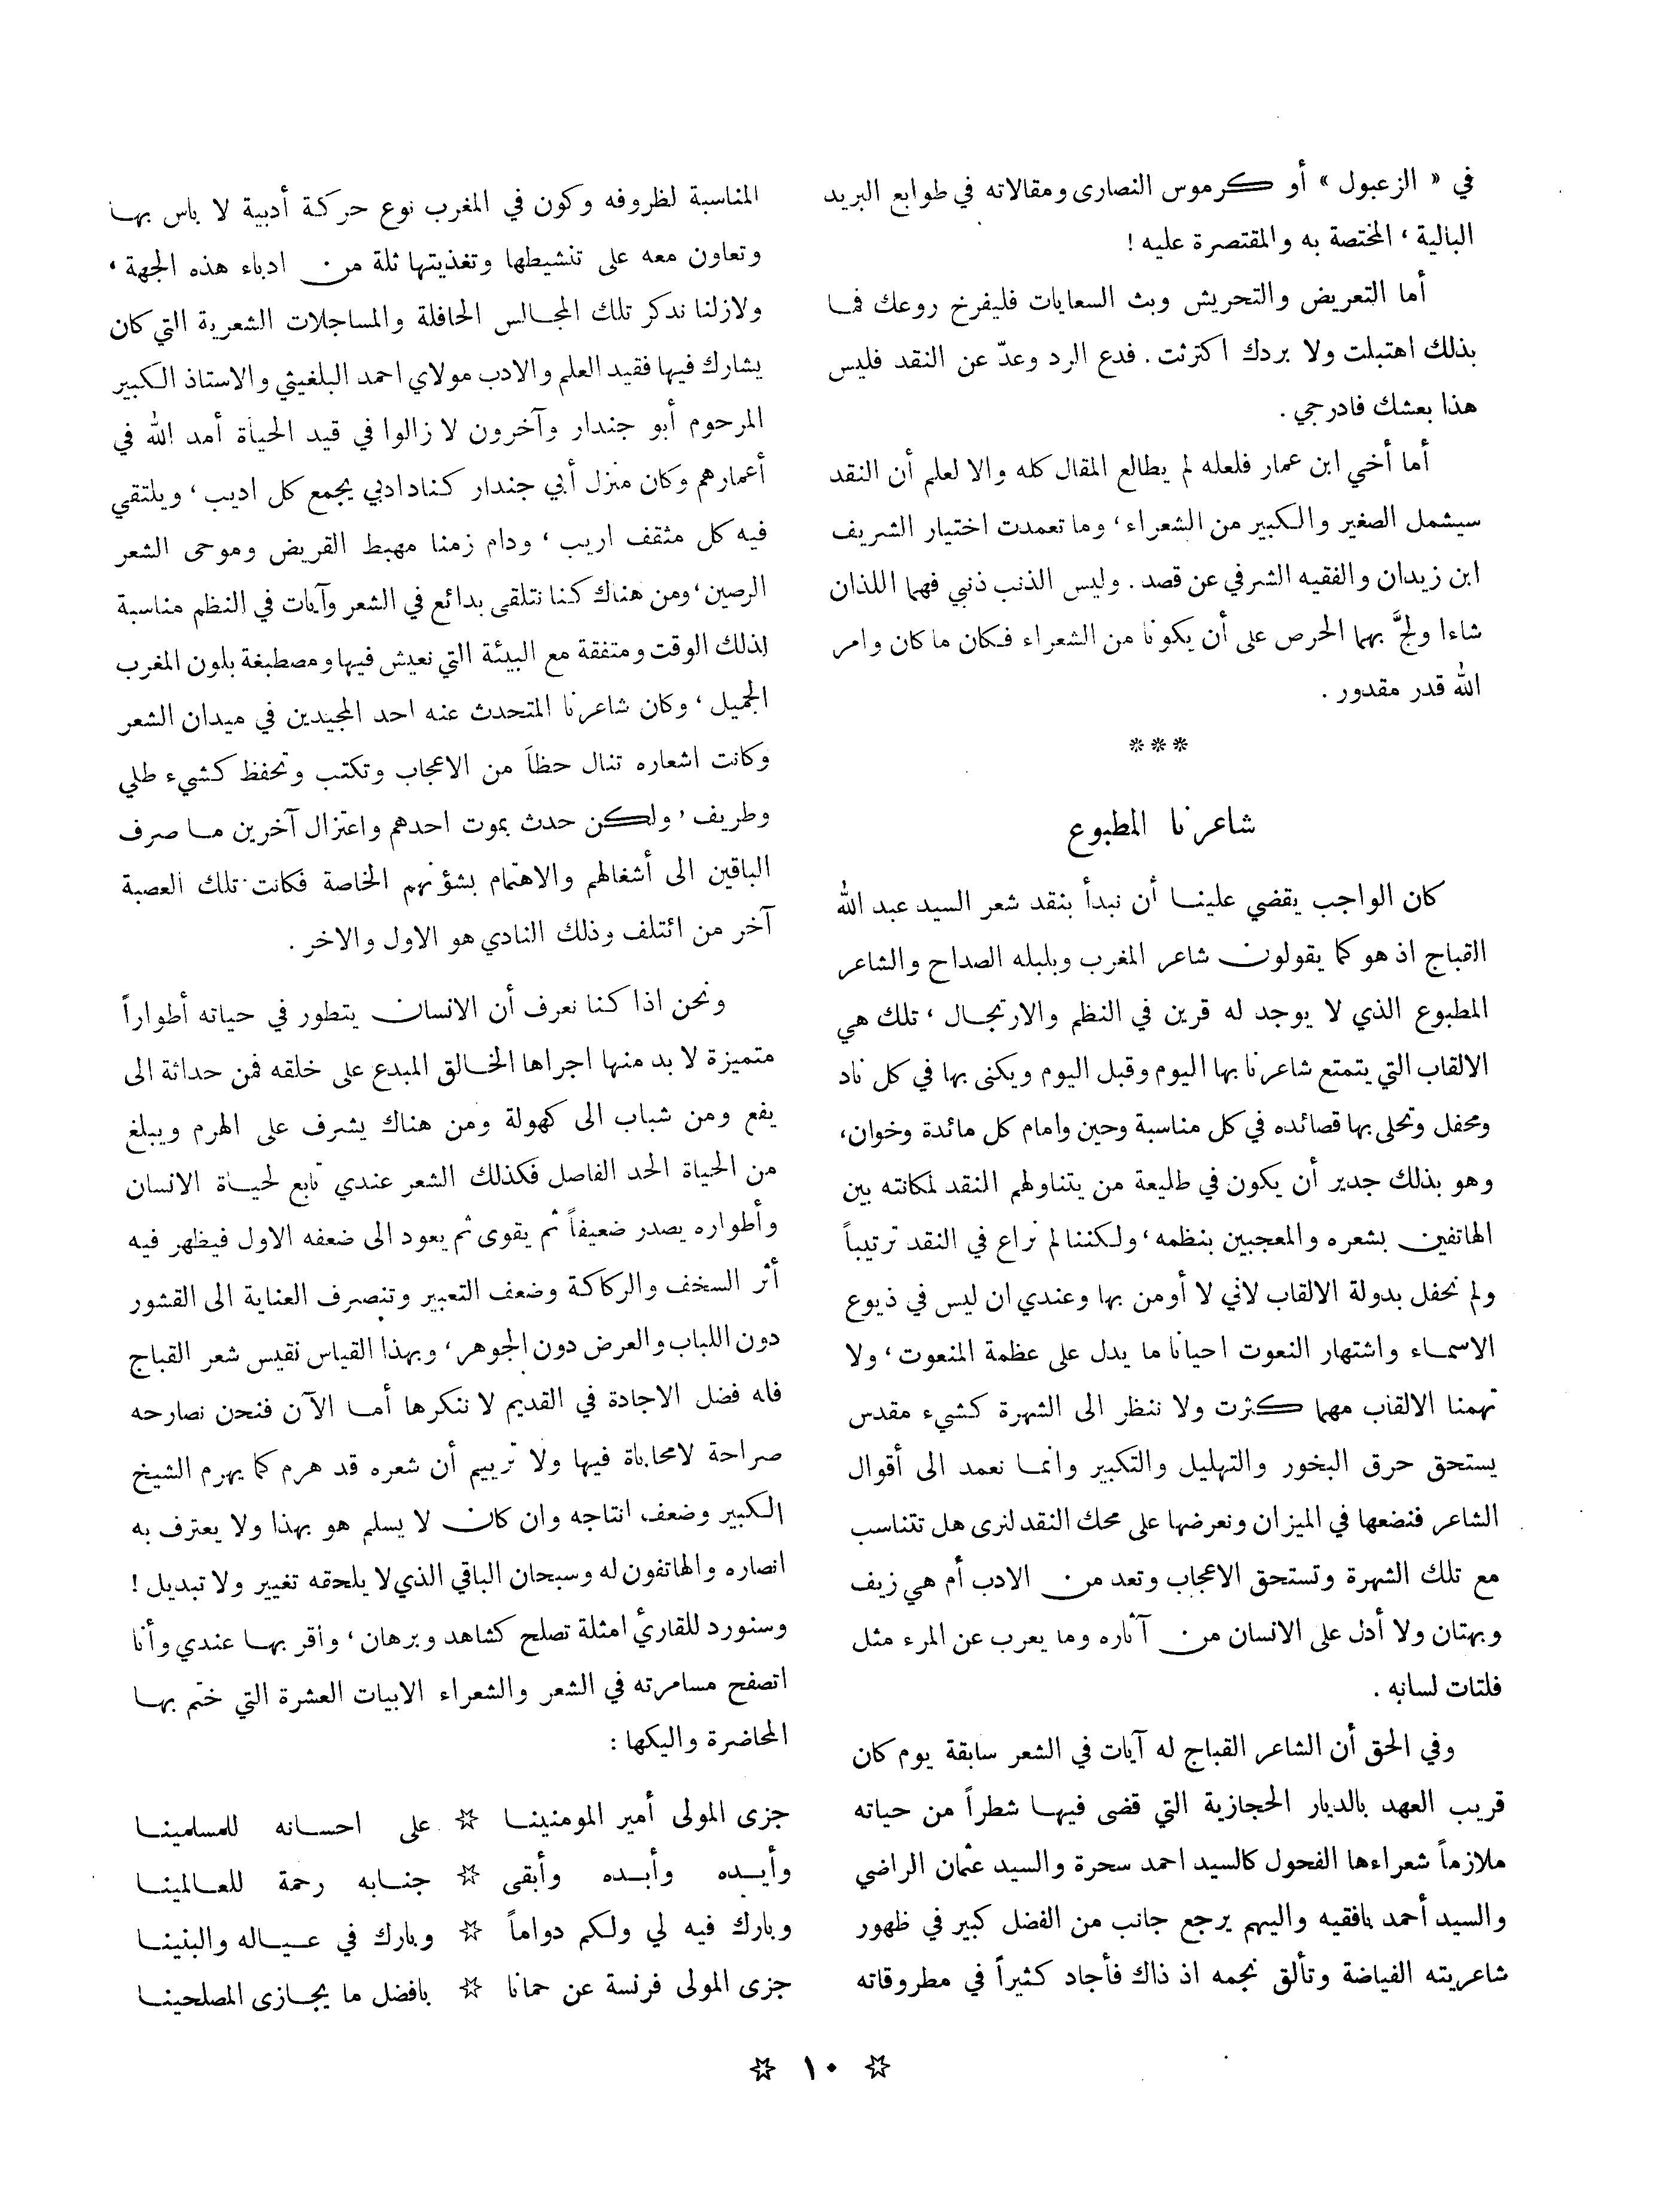 في « الزعبول » أو كرموس النصارى ومقالاته في طوابع البريد
البالية ، المختصة به والمقتصرة عليه !
أما التعريض والتحريش وبث السعايات فليفرخ روعك فما
بذلك اهتبلت ولا بردك اكترثت . فدع الرد وعدّ عن النقد فليس
هذا بعشك فادرجي .
أما أخي ابن عمار فلعله لم يطالع المقال كله والا لعلم أن النقد
سيشمل الصغير والكبير من الشعراء ، وما تعمدت اختيار الشريف
ابن زيدان والفقيه الشرفي عن قصد . وليس الذنب ذنبي فهما اللذان
شاءا ولجَّ بهما الحرص على أن يكونا من الشعراء فكان ما كان وامر
الله قدر مقدور .
***
شاعرنا المطبوع
كان الواجب يقضي علينا أن نبدأ بنقد شعر السيد عبد الله
القباج اذ هو كما يقولون شاعر المغرب وبلبله الصداح والشاعر
المطبوع الذي لا يوجد له قرين في النظم والارتجال ، تلك هي
الالقاب التي يتمتع شاعرنا بها اليوم وقبل اليوم ويكنى بها في كل ناد
ومحفل وتحلى بها قصائده في كل مناسبة وحين وامام كل مائدة وخوان،
وهو بذلك جدير أن يكون في طليعة من يتناولهم النقد لمكانته بين
الهاتفين بشعره والمعجبين بنظمه ، ولكننا لم نراع في النقد ترتيباً
ولم نحفل بدولة الالقاب لاني لا أومن بها وعندي ان ليس في ذيوع
الاسماء واشتهار النعوت احيانا ما يدل على عظمة المنعوت ، ولا
تهمنا الالقاب مهما كثرت ولا ننظر الى الشهرة كشيء مقدس
يستحق حرق البخور والتهليل والتكبير وانما نعمد الى أقوال
الشاعر فنضعها في الميزان ونعرضها على محك النقد لنرى هل تتناسب
مع تلك الشهرة وتستحق الاعجاب وتعد من الادب أم هي زيف
وبهتان ولا أدل على الانسان من آثاره وما يعرب عن المرء مثل
فلتات لسانه .
وفي الحق أن الشاعر القباج له آيات في الشعر سابقة يوم كان
قريب العهد بالديار الحجازية التي قضى فيها شطراً من حياته
ملازماً شعراءها الفحول كالسيد احمد سحرة والسيد عثمان الراضي
والسيد أحمد بافقيه واليهم يرجع جانب من الفضل كبير في ظهور
شاعريته الفياضة وتألق نجمه اذ ذاك فأجاد كثيراً في مطروقاته
المناسبة لظروفه وكون في المغرب نوع حركة أدبية لا باس بها
وتعاون معه على تنشيطها وتغذيتها ثلة من ادباء هذه الجهة ،
ولازلنا ندكر تلك المجالس الحافلة والمساجلات الشعرية التي كان
يشارك فيها فقيد العلم والادب مولاي احمد البلغيثي والاستاذ الكبير
المرحوم أبو جندار وآخرون لا زالوا في قيد الحياة أمد الله في
أعمارهم وكان منزل أبي جندار كنادادبي يجمع كل اديب ، ويلتقي
فيه كل مثقف اريب ، ودام زمنا مهبط القريض وموحى الشعر
الرصين ، ومن هناك كنا نتلقى بدائع في الشعر وآيات في النظم مناسبة
لذلك الوقت ومتفقة مع البيئة التي نعيش فيها ومصطبغة بلون المغرب
الجميل ، وكان شاعرنا المتحدث عنه احد المجيدين في ميدان الشعر
وكانت اشعاره تنال حظاً من الاعجاب وتكتب وتحفظ كشيء طلي
وطريف ، ولكن حدث بموت احدهم واعتزال آخرين ما صرف
الباقين الى أشغالهم والاهتمام بشؤنهم الخاصة فكانت تلك العصبة
آخر من ائتلف وذلك النادي هو الاول والاخر .
ونحن اذا كنا نعرف أن الانسان يتطور في حياته أطواراً
متميزة لا بد منها اجراها الخالق المبدع على خلقه فمن حداثة الى
يفع ومن شباب الى كهولة ومن هناك يشرف على الهرم ويبلغ
من الحياة الحد الفاصل فكذلك الشعر عندي تابع لحياة الانسان
وأطواره يصدر ضعيفاً ثم يقوى ثم يعود الى ضعفه الاول فيظهر فيه
أثر السخف والركاكة وضعف التعبير وتنصرف العناية الى القشور
دون اللباب والعرض دون الجوهر ، وبهذا القياس نقيس شعر القباج
فله فضل الاجادة في القديم لا ننكرها أما الآن فنحن نصارحه
صراحة لا محاباة فيها ولا ترييم أن شعره قد هرم كما يهرم الشيخ
الكبير وضعف انتاجه وان كان لا يسلم هو بهذا ولا يعترف به
انصاره والهاتفون له وسبحان الباقي الذي لا يلحقه تغيير ولا تبديل !
وسنورد للقاريء امثلة تصلح كشاهد وبرهان ، واقر بها عندي وأنا
اتصفح مسامرته في الشعر والشعراء الابيات العشرة التي ختم بها
المحاضرة واليكها :
جزى المولى أمير المومنينا ☆ على احسانه للمسلمينا
وأيده وأبده وأبقى ☆ جنابه رحمة للعالمينا
وبارك فيه لي ولكم دواماً ☆ وبارك في عياله والبنينا
جزى المولى فرنسة عن حمانا ☆ بافضل ما يجازى المصلحينا
☆ ١٠ ☆